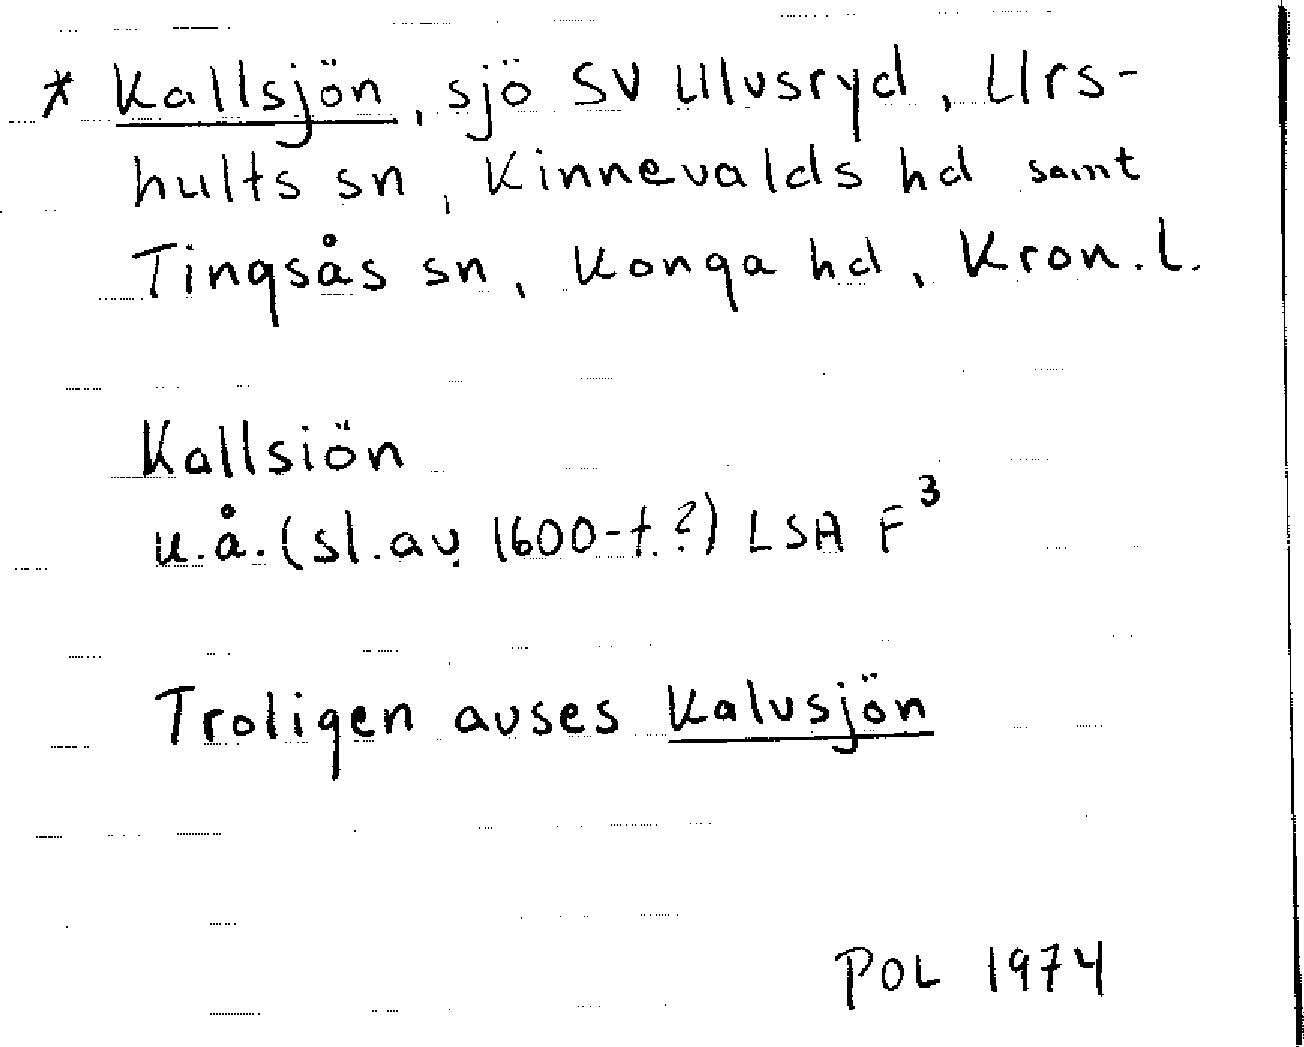 * Kallsjön, sjö SV Ulvsryd, Urs-
hults sn, Kinnevalds hd samt
Tingsås sn, Konga hd, Kron. l.
Kallsiön
u.å. (sl. av 1600-t.?) LSA F³
Troligen avses Kalvsjön
POL 1974